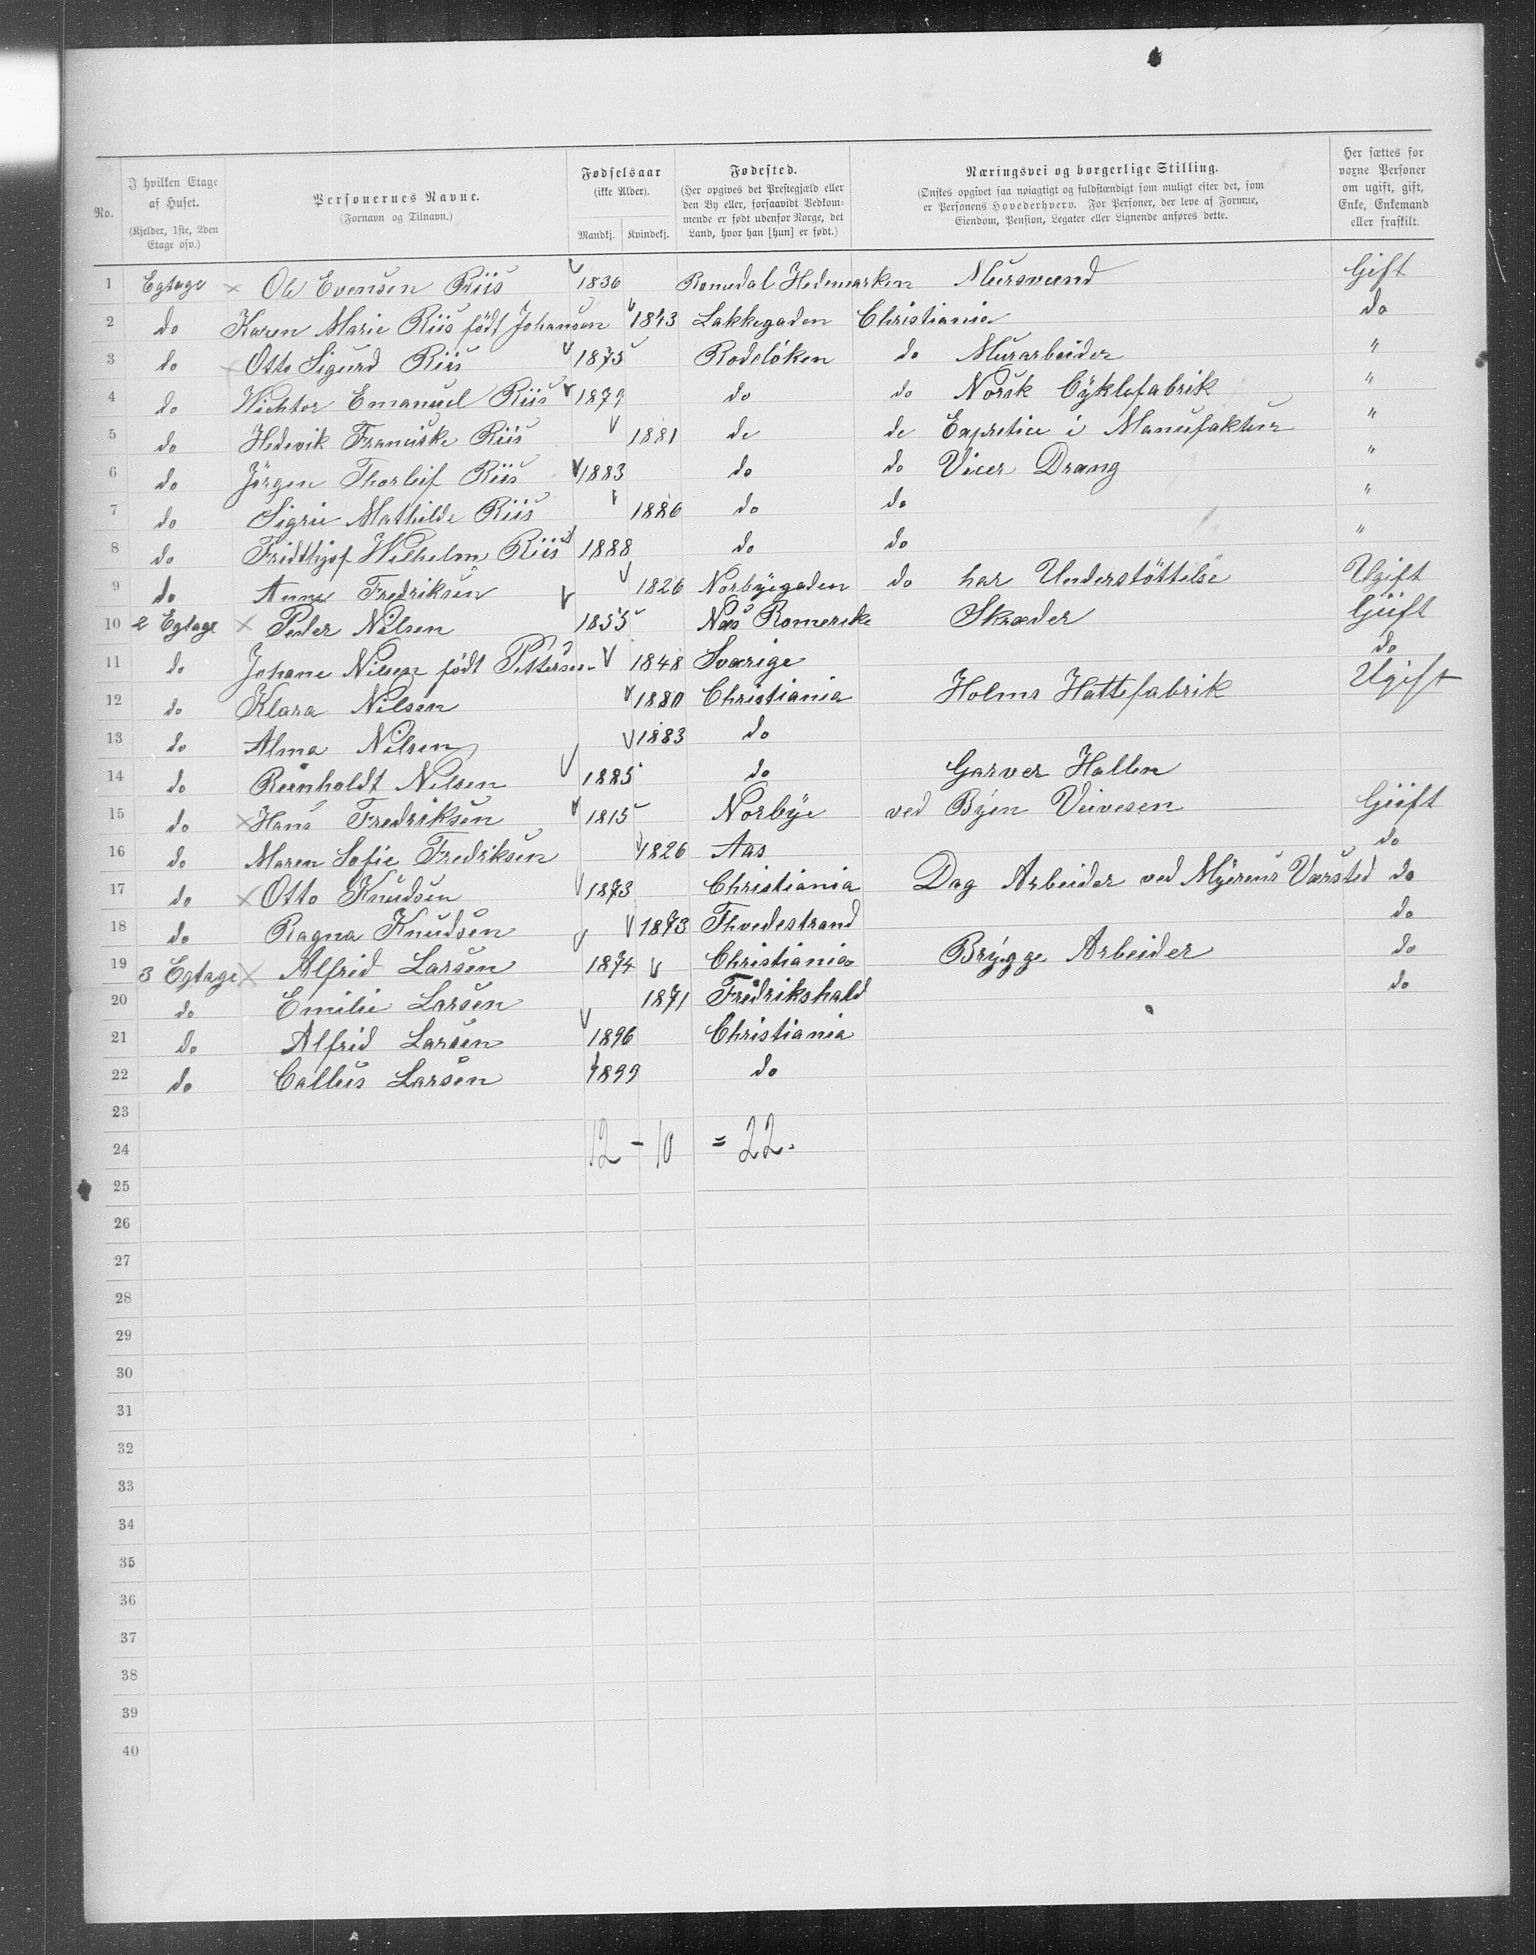 No.
I hvilken Etage af Huset.
(Kjelder, 1ste, 2den Etage osv.)
Personernes Navne.
(Fornavn og Tilnavn.)
Fødselsaar
(ikke Alder).
Mandkj. Kvindekj.
Fødested.
(Her opgives det Prestegjæld eller den By eller, forsaavidt Vedkommende er født udenfor Norge, det Land, hvor han [hun] er født.)
Næringsvei og borgerlige Stilling.
(Ønskes opgivet saa nøiagtigt og fuldstændigt som muligt efter det, som er Personens Hovederhverv. For Personer, der leve af Formue, Eiendom, Pension, Legater eller Lignende anføres dette.
Her sættes for voxne Personer om ugift, gift, Enke, Enkemand eller fraskilt.
1 Egtage × Ole Evensen Riis 1836 Romedal Hedemarken Mursvend Gift
2 do Karen Marie Riis født Johansen 1843 Lakkegaden Christiania do
3 do Otto Sigurd Riis 1875 Rodeløken do Murarbeider "
4 do Wichtor Emanuel Riis 1879 do do Norsk Cyklefabrik "
5 do Hedevik Franciske Riis 1881 do do i Manufaktur "
6 do Jørgen Thorleif Riis 1883 do do Vicer Drang "
7 do Sigrie Mathilde Riis 1886 do do "
8 do Fridthjof Wilhelm Riis 1888 do do "
9 do Anne Fredriksen 1826 Norbyegaden do har Understøttelse Ugift
10 2 Egtage × Peder Nilsen 1855 Næs Romerike Skræder Giift
11 do Johane Nilsen født Pettersen 1848 Sværige do
12 do Klara Nilsen 1880 Christiania Holms Hattefabrik Ugift
13 do Alma Nilsen 1883 do
14 do Reinholdt Nilsen 1885 do Garver Hallen
15 do × Hans Fredriksen 1815 Norbye ved Byen Veivesen Giift
16 do Maren Sofie Fredriksen 1826 Aas do
17 do × Otto Knudsen 1873 Christiania Dag Arbeider ved Myrens Værsted do
18 do Ragna Knudsen 1873 Thvedestrand do
19 3 Egtage × Alfrid Larsen 1874 Christiania Brygge Arbeider do
20 do Emilie Larsen 1871 Fredrikshald do
21 do Alfrid Larsen 1896 Christiania
22 do Callus Larsen 1899 do
23
24 12 - 10 = 22.
25
26
27
28
29
30
31
32
33
34
35
36
37
38
39
40